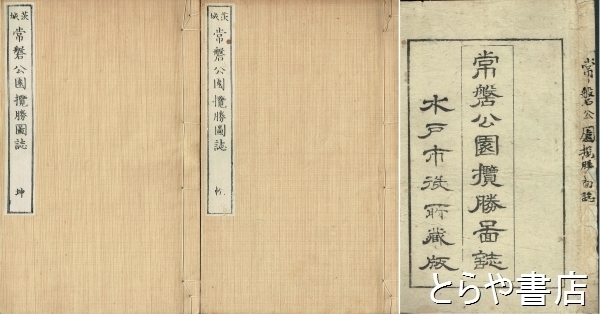 茨城
常磐公園攬勝圖誌
坤
茨城
常磐公園攬勝圖誌
乾
常磐公園攬勝圖誌
水戸市役所蔵版
常磐公園攬勝圖誌
とらや書店